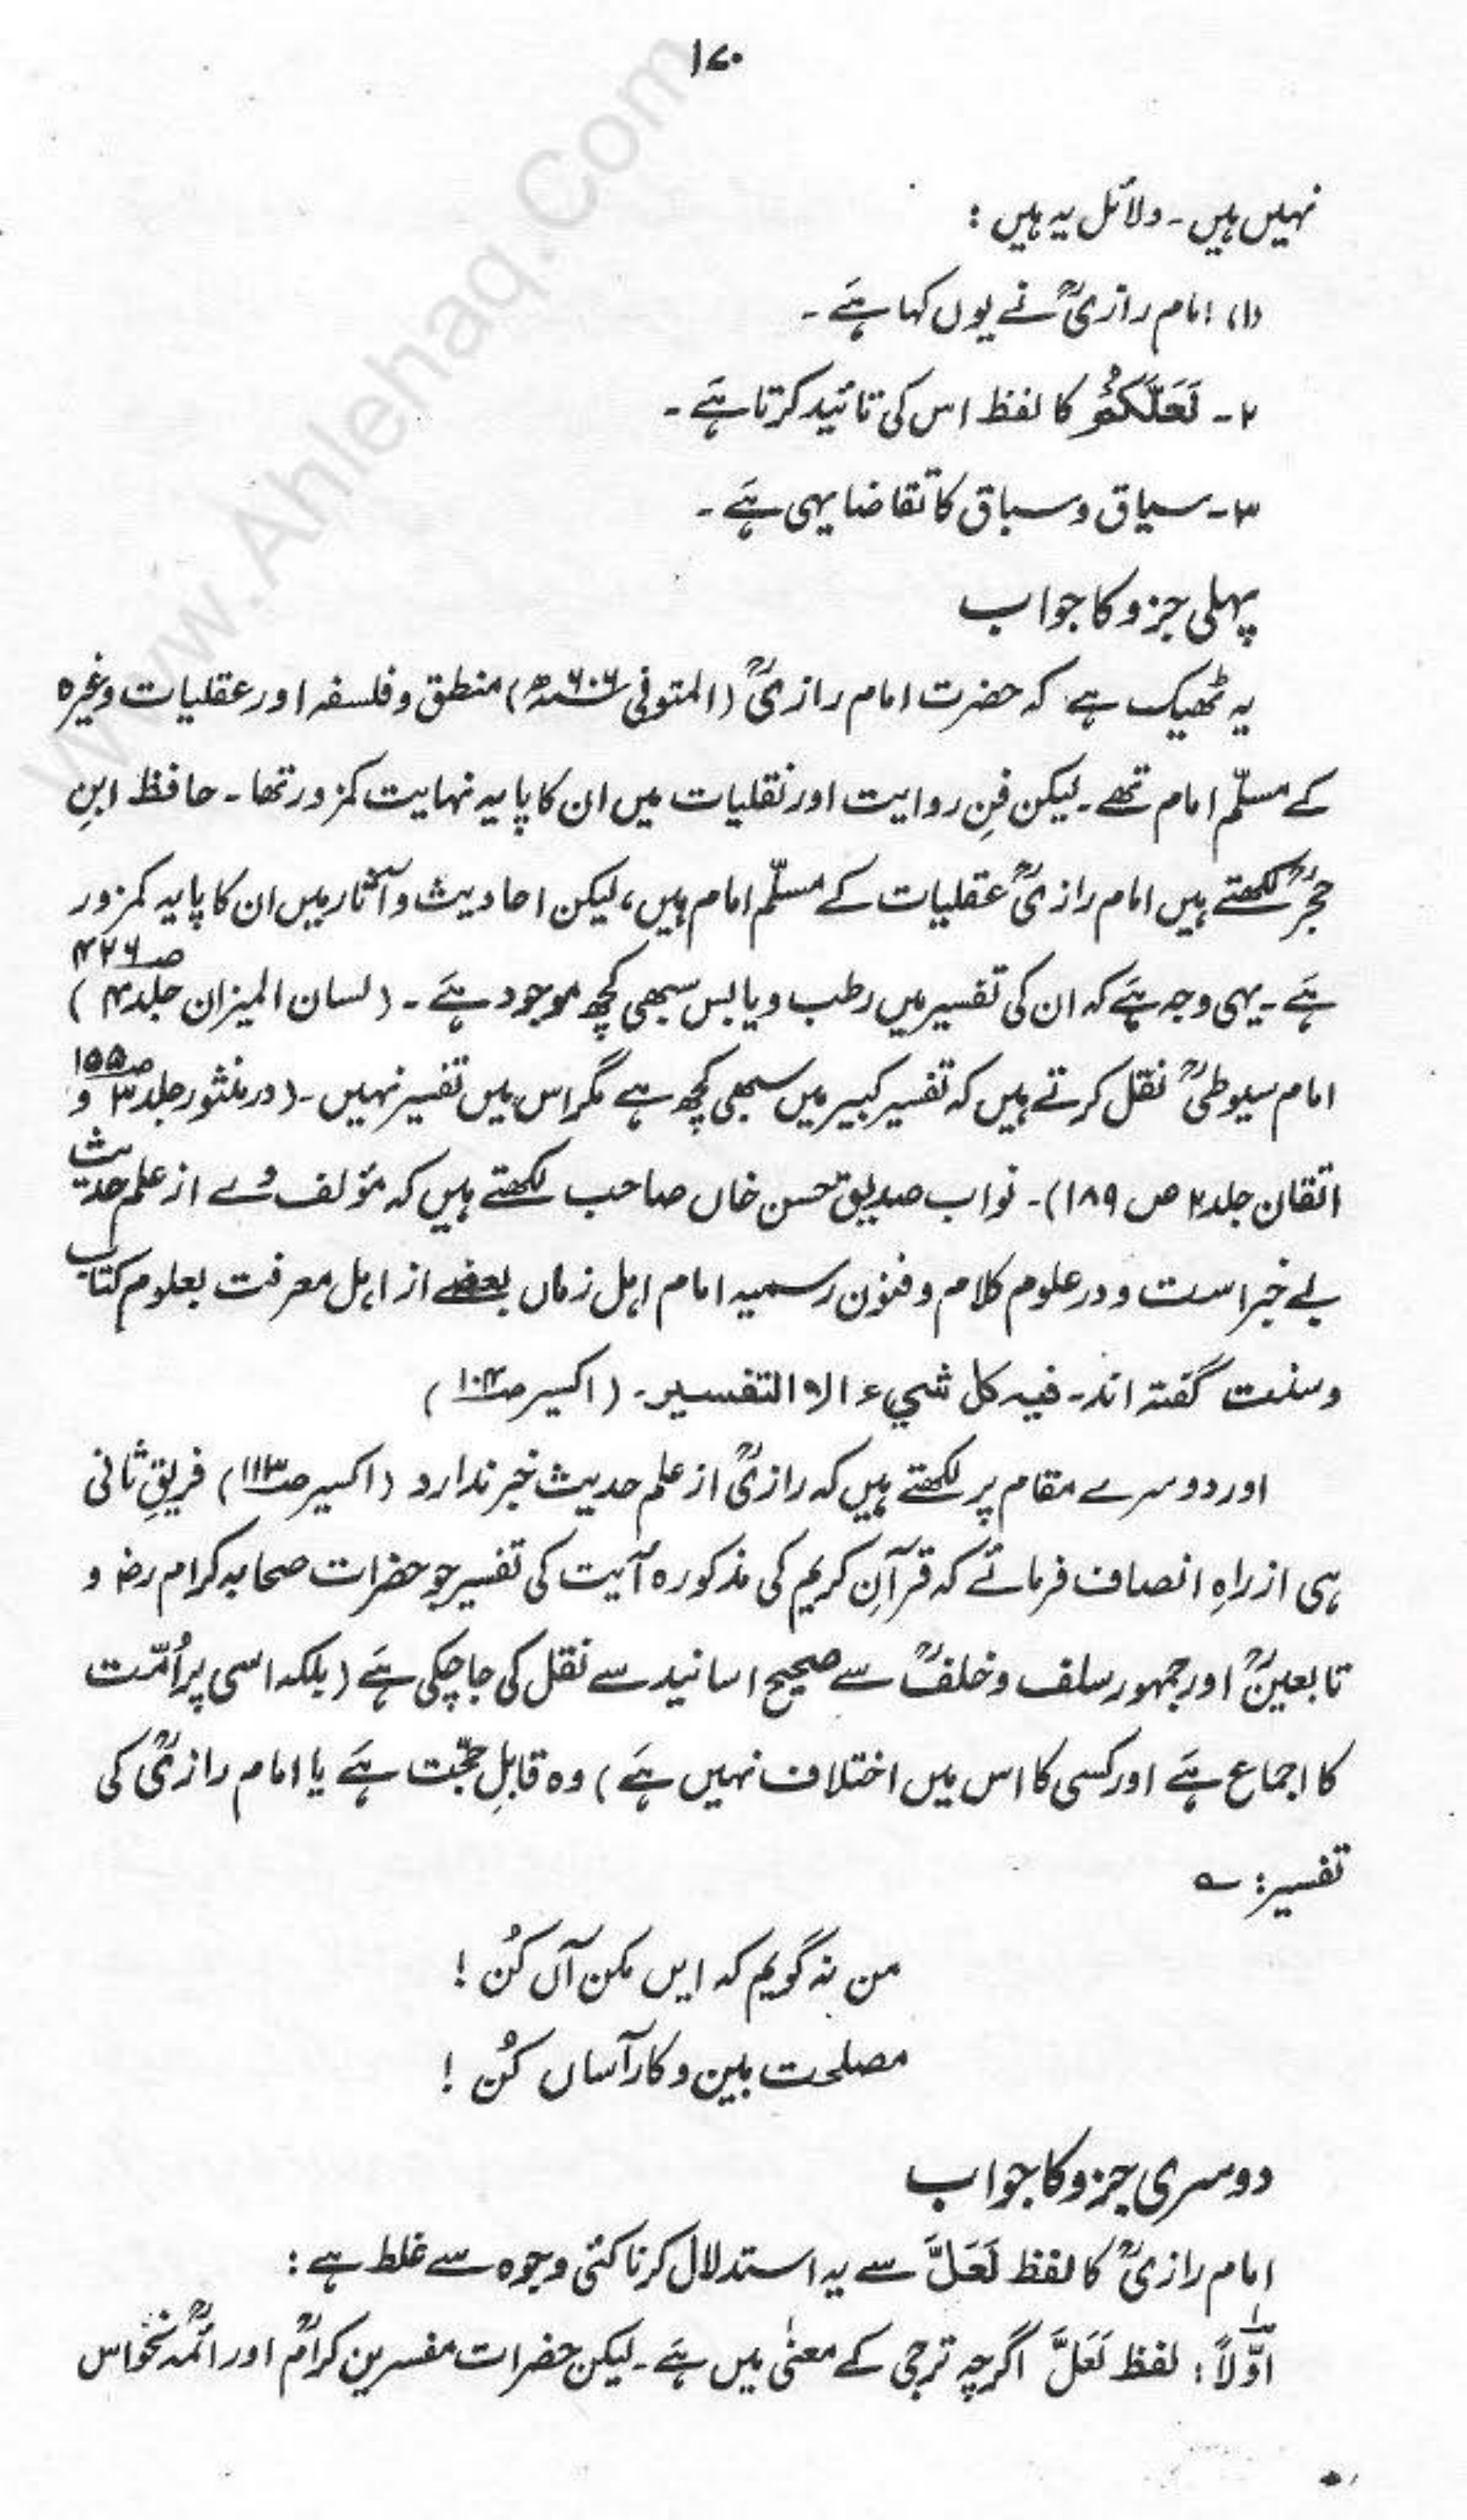 ۱۷۰
نہیں ہیں۔ دلائل یہ ہیں :
(۱) امام رازیؒ نے یوں کہا ہے۔
۲۔ لَعَلَّكُمْ کا لفظ اس کی تائید کرتا ہے۔
۳۔ سیاق و سباق کا تقاضا یہی ہے۔
پہلی جزو کا جواب
یہ ٹھیک ہے کہ حضرت امام رازیؒ (المتوفی ۶۰۶ھ) منطق و فلسفہ اور عقلیات وغیرہ
کے مسلّم امام تھے۔ لیکن فنِ روایت اور نقلیات میں ان کا پایہ نہایت کمزور تھا۔ حافظ ابنِ
حجرؒ لکھتے ہیں امام رازیؒ عقلیات کے مسلّم امام ہیں، لیکن احادیث و آثار میں ان کا پایہ کمزور
ہے۔ یہی وجہ ہے کہ ان کی تفسیر میں رطب و یابس سبھی کچھ موجود ہے۔ (لسان المیزان جلد ۴ ص ۴۲۶)
امام سیوطیؒ نقل کرتے ہیں کہ تفسیر کبیر میں سبھی کچھ ہے مگر اس میں تفسیر نہیں۔ (در منثور جلد ۳ ص ۱۵۵ و
اتقان جلد ۲ ص ۱۸۹)۔ نواب صدیق حسن خاں صاحب لکھتے ہیں کہ مؤلف وے از علم حدیث
بے خبر است و در علوم کلام و فنون رسمیہ امام اہل زماں بعضے از اہل معرفت بعلوم کتاب
و سنت گفتہ اند۔ فيه كل شيء الا التفسير۔ (اکسیر ص ۱۰۴)
اور دوسرے مقام پر لکھتے ہیں کہ رازیؒ از علم حدیث خبر ندارد (اکسیر ص ۱۱۳) فریقِ ثانی
ہی از راہِ انصاف فرمائے کہ قرآنِ کریم کی مذکورہ آیت کی تفسیر جو حضرات صحابہ کرام رضؓ و
تابعینؒ اور جمہور سلف و خلفؒ سے صحیح اسانید سے نقل کی جا چکی ہے (بلکہ اسی پر اُمّت
کا اجماع ہے اور کسی کا اس میں اختلاف نہیں ہے) وہ قابلِ حجّت ہے یا امام رازیؒ کی
تفسیر : ؎
من نہ گویم کہ ایں مکن آں کُن !
مصلحت بین و کار آساں کُن !
دوسری جزو کا جواب
امام رازیؒ کا لفظ لَعَلَّ سے یہ استدلال کرنا کئی وجوہ سے غلط ہے :
اوّلاً : لفظ لَعَلَّ اگرچہ ترجی کے معنیٰ میں ہے۔ لیکن حضرات مفسرین کرامؒ اور ائمہ نحوؒ اس
www.Ahlehaq.Com